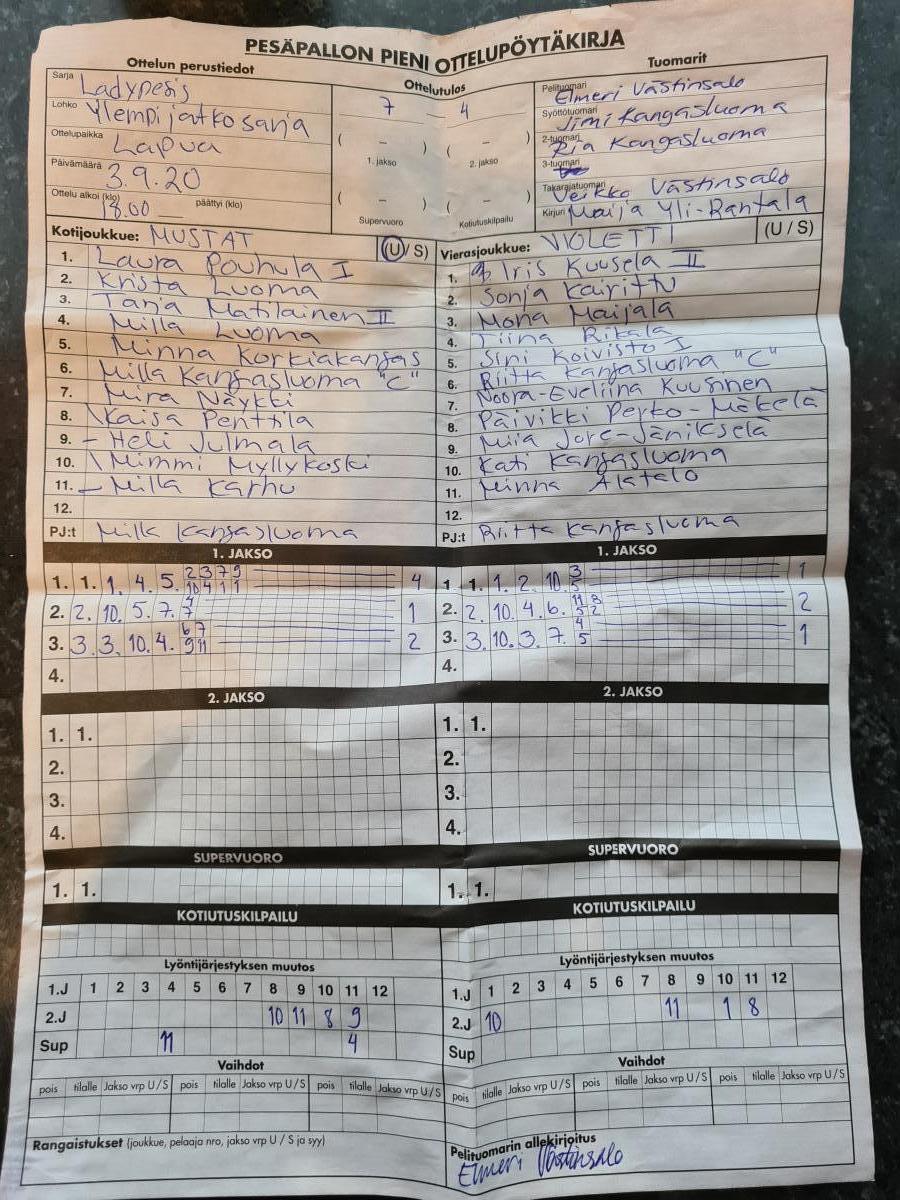 PESÄPALLON PIENI OTTELUPÖYTÄKIRJA
Ottelun perustiedot
Sarja Ladypesis
Lohko Ylempi jatkosarja
Ottelupaikka Lapua
Päivämäärä 3.9.20
Ottelu alkoi (klo) 18.00 päättyi (klo)
Ottelutulos
7 – 4
( – ) ( – )
1. jakso 2. jakso
( – ) ( – )
Supervuoro Kotiutuskilpailu
Tuomarit
Pelituomari Elmeri Västinsalo
Syöttötuomari Jimi Kangasluoma
2-tuomari Ria Kangasluoma
3-tuomari
Takarajatuomari Veikko Västinsalo
Kirjuri Maija Yli-Rantala
Kotijoukkue: MUSTAT (U/ S)
1. Laura Pouhula I
2. Krista Luoma
3. Tanja Matilainen II
4. Milla Luoma
5. Minna Korkiakangas
6. Milla Kangasluoma "C"
7. Mira Näykki
8. \ Kaisa Penttilä
9. – Heli Julmala
10. \ Mimmi Myllykoski
11. – Milla Karhu
12.
PJ:t Milla Kangasluoma
Vierasjoukkue: VIOLETTI (U / S)
1. Iris Kuusela II
2. Sonja Kairittu
3. Mona Maijala
4. Tiina Rikala
5. Sini Koivisto I
6. Riitta Kangasluoma "C"
7. Noora-Eveliina Kuusinen
8. Päivikki Perko-Mäkelä
9. Miia Jore-Jänikselä
10. Kati Kangasluoma
11. Minna Alatalo
12.
PJ:t Riitta Kangasluoma
1. JAKSO
1. 1. 1. 4. 5. 2 3 7 9 4
10 4 1 1
2. 2. 10. 5. 7. 1
3. 3. 3. 10. 4. 6 7 2
9 11
4.
1. JAKSO
1 1 1. 2. 10. 3 1
5
2. 2. 10. 4. 6. 11 8 2
5 2
3. 3. 10. 3. 7. 4 1
5
4.
2. JAKSO
1. 1.
2.
3.
4.
2. JAKSO
1. 1.
2.
3.
4.
SUPERVUORO
1. 1.
SUPERVUORO
1. 1.
KOTIUTUSKILPAILU
KOTIUTUSKILPAILU
Lyöntijärjestyksen muutos
1.J 1 2 3 4 5 6 7 8 9 10 11 12
2.J 10 11 8 9
Sup 11 4
Lyöntijärjestyksen muutos
1.J 1 2 3 4 5 6 7 8 9 10 11 12
2.J 10 11 1 8
Sup
Vaihdot
pois tilalle Jakso vrp U / S pois tilalle Jakso vrp U / S pois tilalle Jakso vrp U / S
Vaihdot
pois tilalle Jakso vrp U / S pois tilalle Jakso vrp U / S pois tilalle Jakso vrp U / S
Rangaistukset (joukkue, pelaaja nro, jakso vrp U / S ja syy)
Pelituomarin allekirjoitus
Elmeri Västinsalo